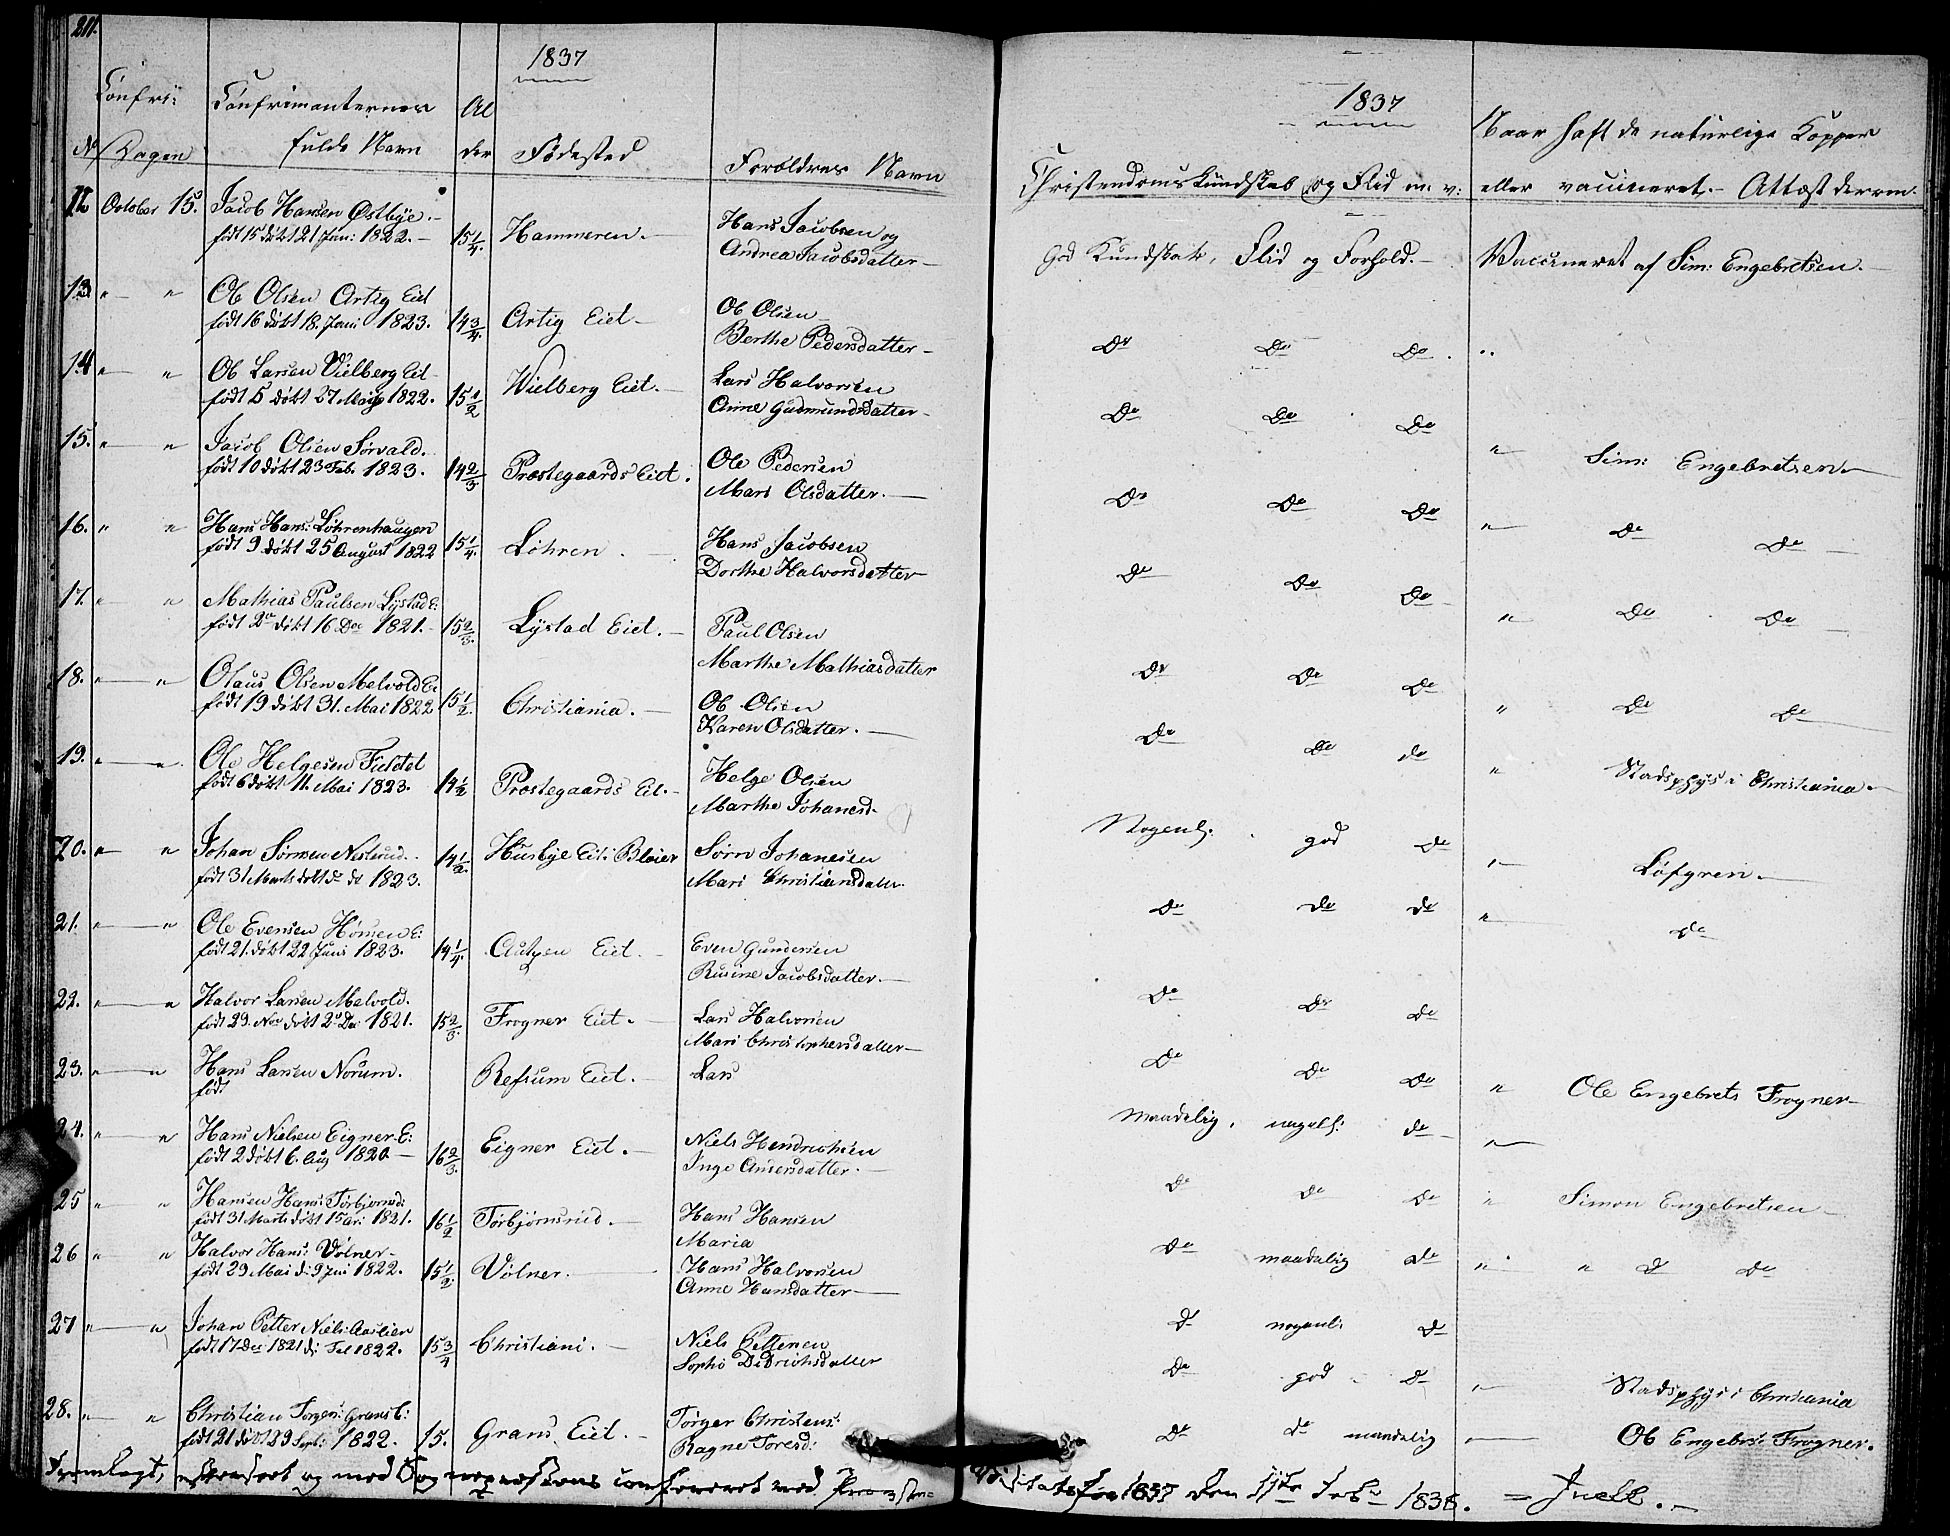 211.
1837
Confir- Confirmanternes Al
N Dagen fulde Navn der Fødested Forældres Navn
12 October 15. Jacob Hansen Østbye.
født 15 døbt 21 Juni 1822. 15 1/4. Hammeren. Hans Jacobsen og
Andrea Jacobsdatter
13. " " Ole Olsen Artig Eiet
født 16 døbt 18. Juni 1823. 14 3/4. Artig Eiet Ole Olsen
Berthe Pedersdatter
14 " " Ole Larsen Vielberg Eiet
født 5 døbt 27 Mai 1822. 15 1/2 Wielberg Eiet. Lars Halvorsen
Anne Gudmundsdatter
15. " " Jacob Olsen Sørvald.
født 10 døbt 23 Feb. 1823. 14 2/3 Præstegaards Eiet. Ole Pedersen
Mari Olsdatter.
16. " " Hans Hans: Løhrenhaugen
født 9 døbt 25 August 1822 15 1/4. Løhren. Hans Jacobsen
Dorthe Halvorsdatter
17. " " Mathias Paulsen Lystad E:
født 2 døbt 16 Dec 1821. 15 2/3. Lystad Eiet. Paul Olsen
Marthe Mathiasdatter
18. " " Olaus Olsen Melvold E:
født 19 døbt 31. Mai 1822 15 1/2. Christiania. Ole Olsen
Karen Olsdatter.
19. " " Ole Helgesen
født 6 døbt 11. Mai 1823. 14 1/2 Præstegaards Eiet. Helge Olsen
Marthe Johanesd.
20. " " Johan Sørensen Nesterud.
født 31 Marts døbt 1823. 14 1/2. Husbye Eiet: Bleier Søren Johanesen
Mari Christiansdatter.
21. " " Ole Evensen Homen E:
født 21. døbt 22 Juni 1823. 14 1/4. Eiet. Even Gundersen
Rusine Jacobsdatter.
22. " " Halvor Larsen Melvold.
født 29. Nov døbt 2 Dec 1821. 15 2/3. Frogner Eiet. Lars Halvorsen
Mari Christophersdatter
23. " " Hans Larsen Norum.
født Refsum Eiet. Lars
24. " " Hans Nielsen Eigner E:
født 2 døbt 6. Aug 1820 16 2/3. Eigner Eiet. Niels Hendrichsen
Inge Andersdatter.
25 " " Hansen Hans: Torbjørnsd:
født 31 Marts døbt 15 1821. 16 1/2 Torbjørnsrud. Hans Hansen
Maria
26 " " Halvor Hans: Vølner
født 29 Mai d: 9 Juni 1822. 15 1/2. Vølner. Hans Halvorsen
Anne Hansdatter
27 " " Johan Petter Niels:
født 17 Dec 1821 d: Feb 1822. 15 3/4 Christiani. Niels Pettersen
Sophi Didrichsdatter
28. " " Christian Torgers: Grans E:
født 21 døbt 29 Sept: 1822. 15. Grans Eiet. Torger Christens:
Ragne Toresd:
1837
Naar haft de naturlige Kopper
Christendoms Kundskab og Flid m. v: eller vaccineret. Attest derom.
God Kundskab, Flid og Forhold. Vaccineret af Sim: Engebretsen.
Do Do Do. "
Do Do Do
" Sim: Engebretsen.
Do Do Do " Do Do
Do Do Do " Do Do
Do Do Do " Do Do
Do Do do " Stadsphys i Christiania.
Nogenl. god Do " Løfgren.
Do Do Do " Do
Do Do Do
Do Do Do " Ole Engebrets Frogner
Maadelig. nogenl: do "
Do Do Do " Simon Engebretsen
Do maadelig do " " do Do
Do nogenl: Do
Do god Do " Stadsphys i Christiania
Do do maadelig Ole Engebr: Frogner.
Fremlagt, og med confereret ved
1837 den 11te Feb: 1838. Juell.